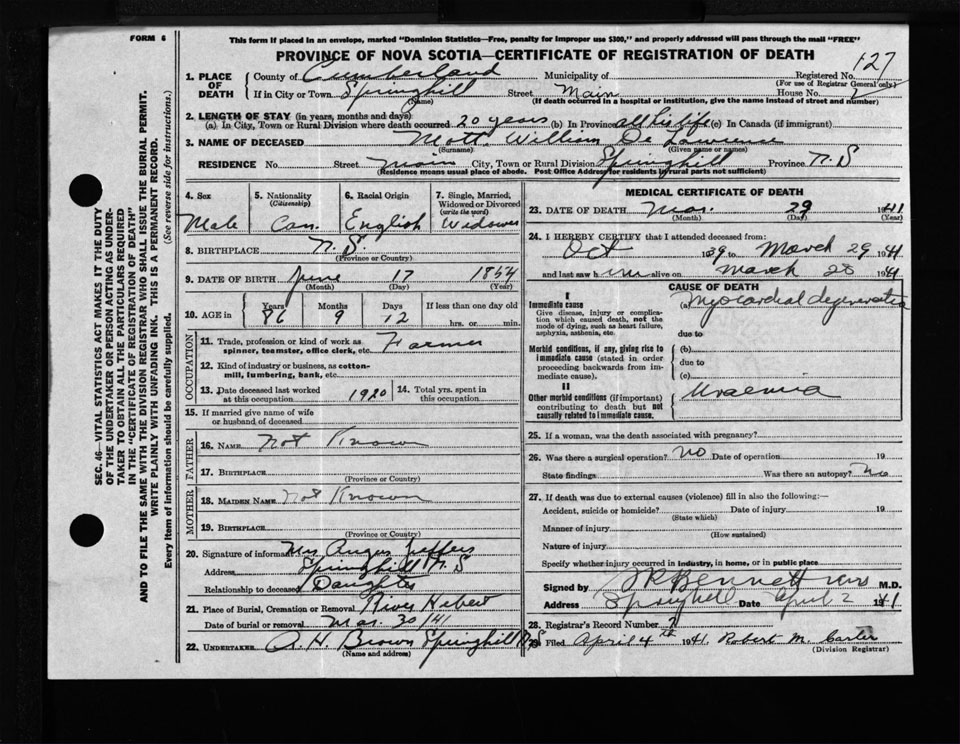 FORM 6
This form if placed in an envelope, marked "Dominion Statistics—Free, penalty for improper use $300," and properly addressed will pass through the mail "FREE"
PROVINCE OF NOVA SCOTIA—CERTIFICATE OF REGISTRATION OF DEATH
SEC. 46—VITAL STATISTICS ACT MAKES IT THE DUTY
OF THE UNDERTAKER OR PERSON ACTING AS UNDER-
TAKER TO OBTAIN ALL THE PARTICULARS REQUIRED
IN THE "CERTIFICATE OF REGISTRATION OF DEATH"
AND TO FILE THE SAME WITH THE DIVISION REGISTRAR WHO SHALL ISSUE THE BURIAL PERMIT.
WRITE PLAINLY WITH UNFADING INK. THIS IS A PERMANENT RECORD.
Every item of information should be carefully supplied. (See reverse side for instructions.)
1. PLACE OF DEATH County of Cumberland Municipality of Registered No. 127
(For use of Registrar General only)
If in City or Town Springhill Street Main House No.
(Name) (If death occurred in a hospital or institution, give the name instead of street and number)
2. LENGTH OF STAY (in years, months and days)
(a) In City, Town or Rural Division where death occurred 20 years (b) In Province all his life (c) In Canada (if immigrant)
3. NAME OF DECEASED Mott William De Lawrence
(Surname) (Given name or names)
RESIDENCE No. Street Main City, Town or Rural Division Springhill Province N.S
(Residence means usual place of abode. Post Office Address for residents in rural parts not sufficient)
4. Sex 5. Nationality (Citizenship) 6. Racial Origin 7. Single, Married, Widowed or Divorced (write the word)
Male Can. English Widower
8. BIRTHPLACE N.S.
(Province or Country)
9. DATE OF BIRTH June 17 1854
(Month) (Day) (Year)
10. AGE in Years Months Days If less than one day old
86 9 12 hrs. or min.
OCCUPATION
11. Trade, profession or kind of work as spinner, teamster, office clerk, etc. Farmer
12. Kind of industry or business, as cotton-mill, lumbering, bank, etc.
13. Date deceased last worked at this occupation 1920 14. Total yrs. spent in this occupation
15. If married give name of wife or husband of deceased
FATHER
16. NAME Not Known
17. BIRTHPLACE
(Province or Country)
MOTHER
18. MAIDEN NAME Not Known
19. BIRTHPLACE
(Province or Country)
20. Signature of informant Mrs Angus Jeffers
Address Springhill N.S
Relationship to deceased Daughter
21. Place of Burial, Cremation or Removal River Hebert
Date of burial or removal Mar. 30/41
22. UNDERTAKER A.H. Brown Springhill N.S
(Name and address)
MEDICAL CERTIFICATE OF DEATH
23. DATE OF DEATH Mar. 29 1941
(Month) (Day) (Year)
24. I HEREBY CERTIFY that I attended deceased from:
Oct 1939 to March 29 1941
and last saw him alive on March 28 1941
CAUSE OF DEATH
I
Immediate cause (a) Myocardial degeneration
Give disease, injury or complication which caused death, not the mode of dying, such as heart failure, asphyxia, asthenia, etc. due to
Morbid conditions, if any, giving rise to immediate cause (stated in order proceeding backwards from immediate cause). (b) due to (c)
II
Other morbid conditions (if important) contributing to death but not causally related to immediate cause. Uraemia
25. If a woman, was the death associated with pregnancy?
26. Was there a surgical operation? No Date of operation 19
State findings Was there an autopsy? No
27. If death was due to external causes (violence) fill in also the following:—
Accident, suicide or homicide? Date of injury 19
(State which)
Manner of injury
(How sustained)
Nature of injury
Specify whether injury occurred in industry, in home, or in public place
Signed by Bennett M.D.
Address Springhill Date April 2 1941
28. Registrar's Record Number
29. Filed April 4th 1941. Robert M. Carter
(Division Registrar)